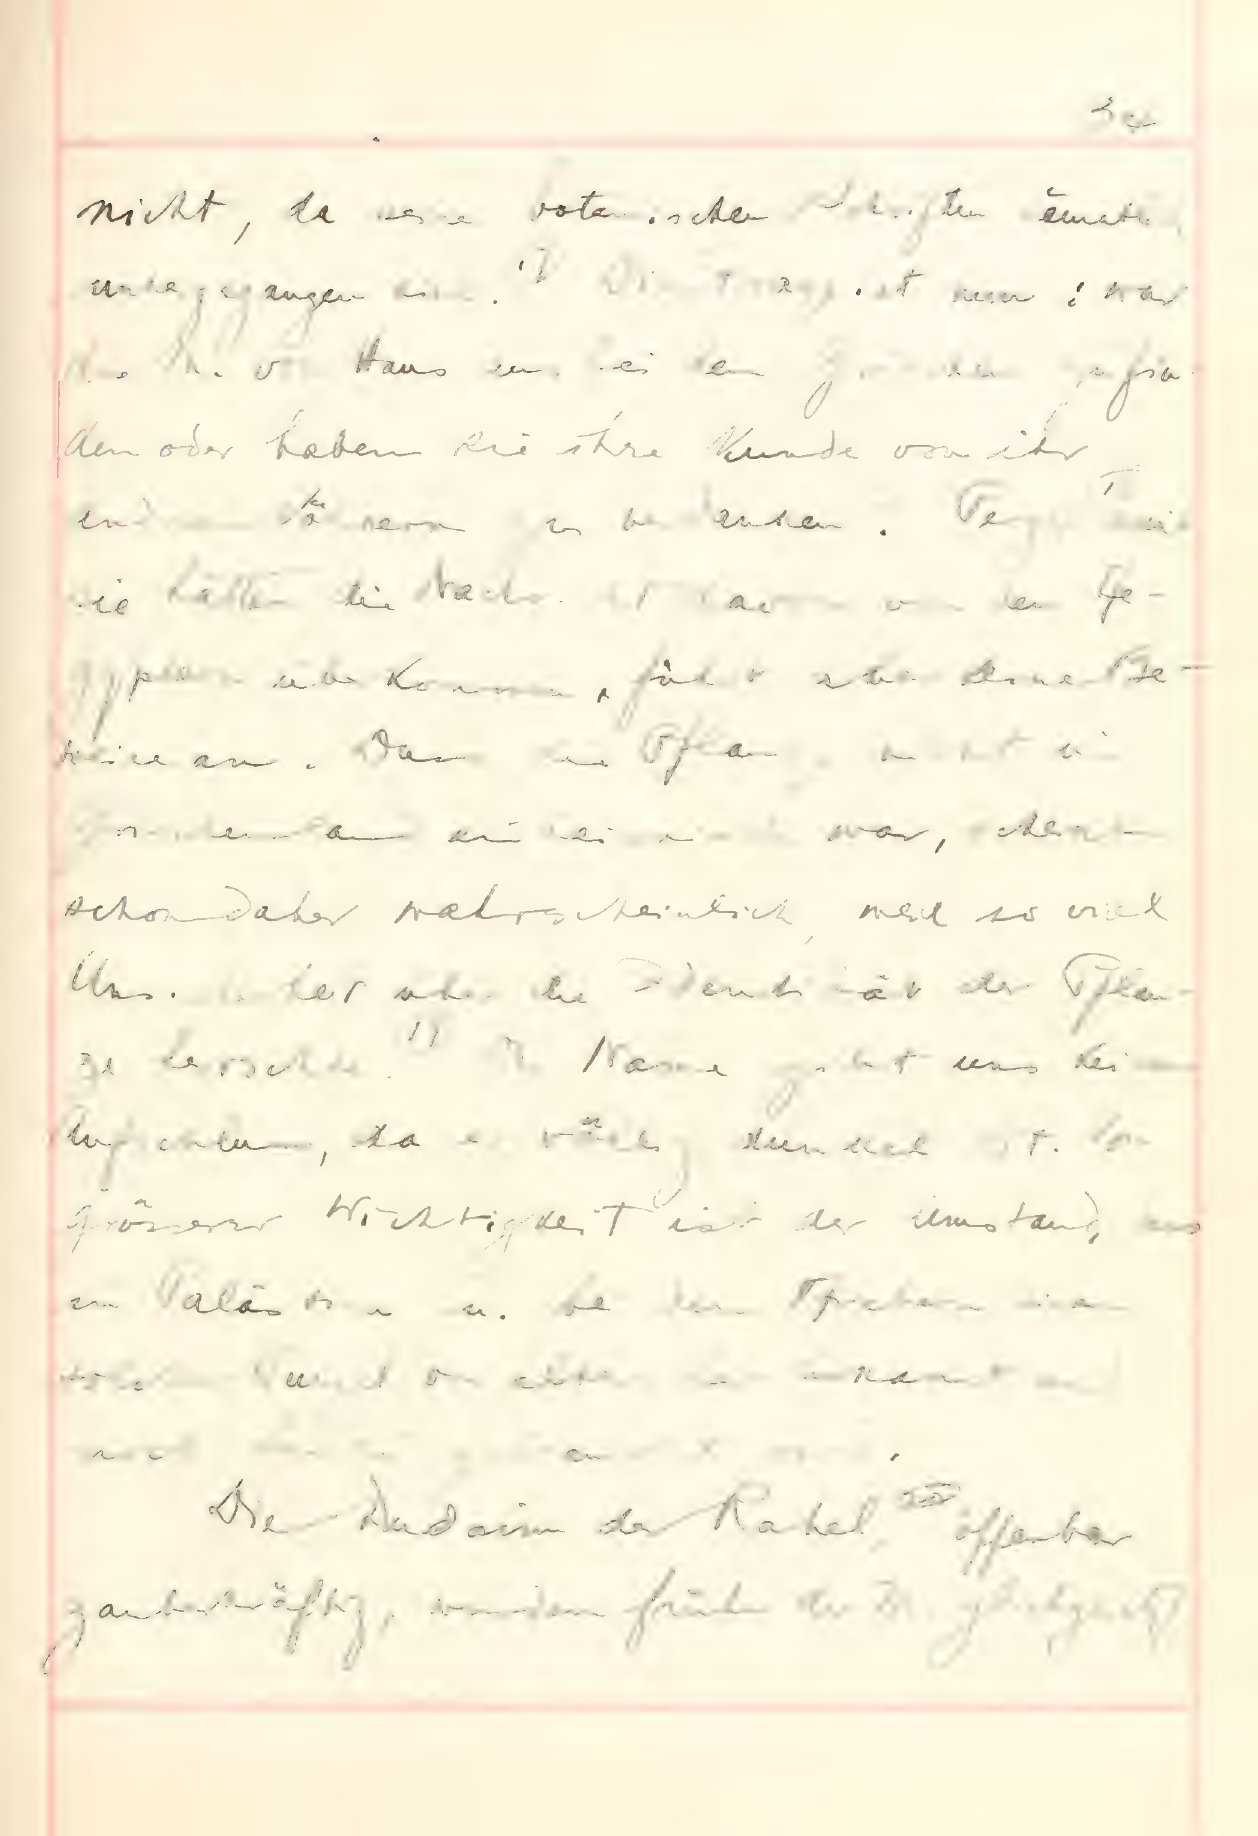 34
nicht, da seine botanischen Schriften sämtlich
untergegangen sind. 1) Die Frage ist nun: war
die M. von Haus aus bei den Griechen zu fin-
den oder haben sie ihre Kunde von ihr
andren Völkern zu verdanken. meint
sie hätten die Nachricht davon von den Ae-
gyptern überkommen, führt aber keine Be-
weise an. Dass die Pflanze nicht in
Griechenland einheimisch war, scheint
schon daher wahrscheinlich, weil so viel
über die Identität der Pflan-
ze herrschte. 1) Der Name gibt uns keinen
Aufschluss, da er völlig dunkel ist. Von
grösserer Wichtigkeit ist der Umstand, dass
in Palästina u. bei den
bekannt

Die Dudaim der Rahel, offenbar
zauberkräftig, wurden früh der M. gleichgesetzt